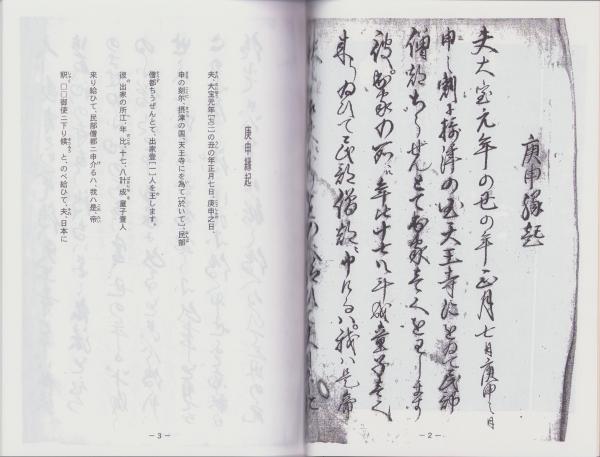 庚申縁起
夫大宝元年の丑の年正月七日庚申之日
申之刻尓摂津の国天王寺にをゐて民部
僧都ちうぜんとて出家壱人をわします
彼出家の所江年比十七八計成童子壱人
来り給ひて民部僧都ニ申ける八我八是帝
－2－
庚申縁起
夫、大宝元年[七〇一]の丑の年正月七日、庚申之日、
申の刻尓、摂津の国、天王寺にを為て[於いて]、民部
僧都ちうぜんとて、出家壹[一]人を王します。
彼の出家の所江、年比、十七、八計成童子壹人
来り給ひて、民部僧都ニ申介るハ、我ハ是、帝
釈、□□御使ニ下り候、と、のべ給ひて、夫、日本に
－3－